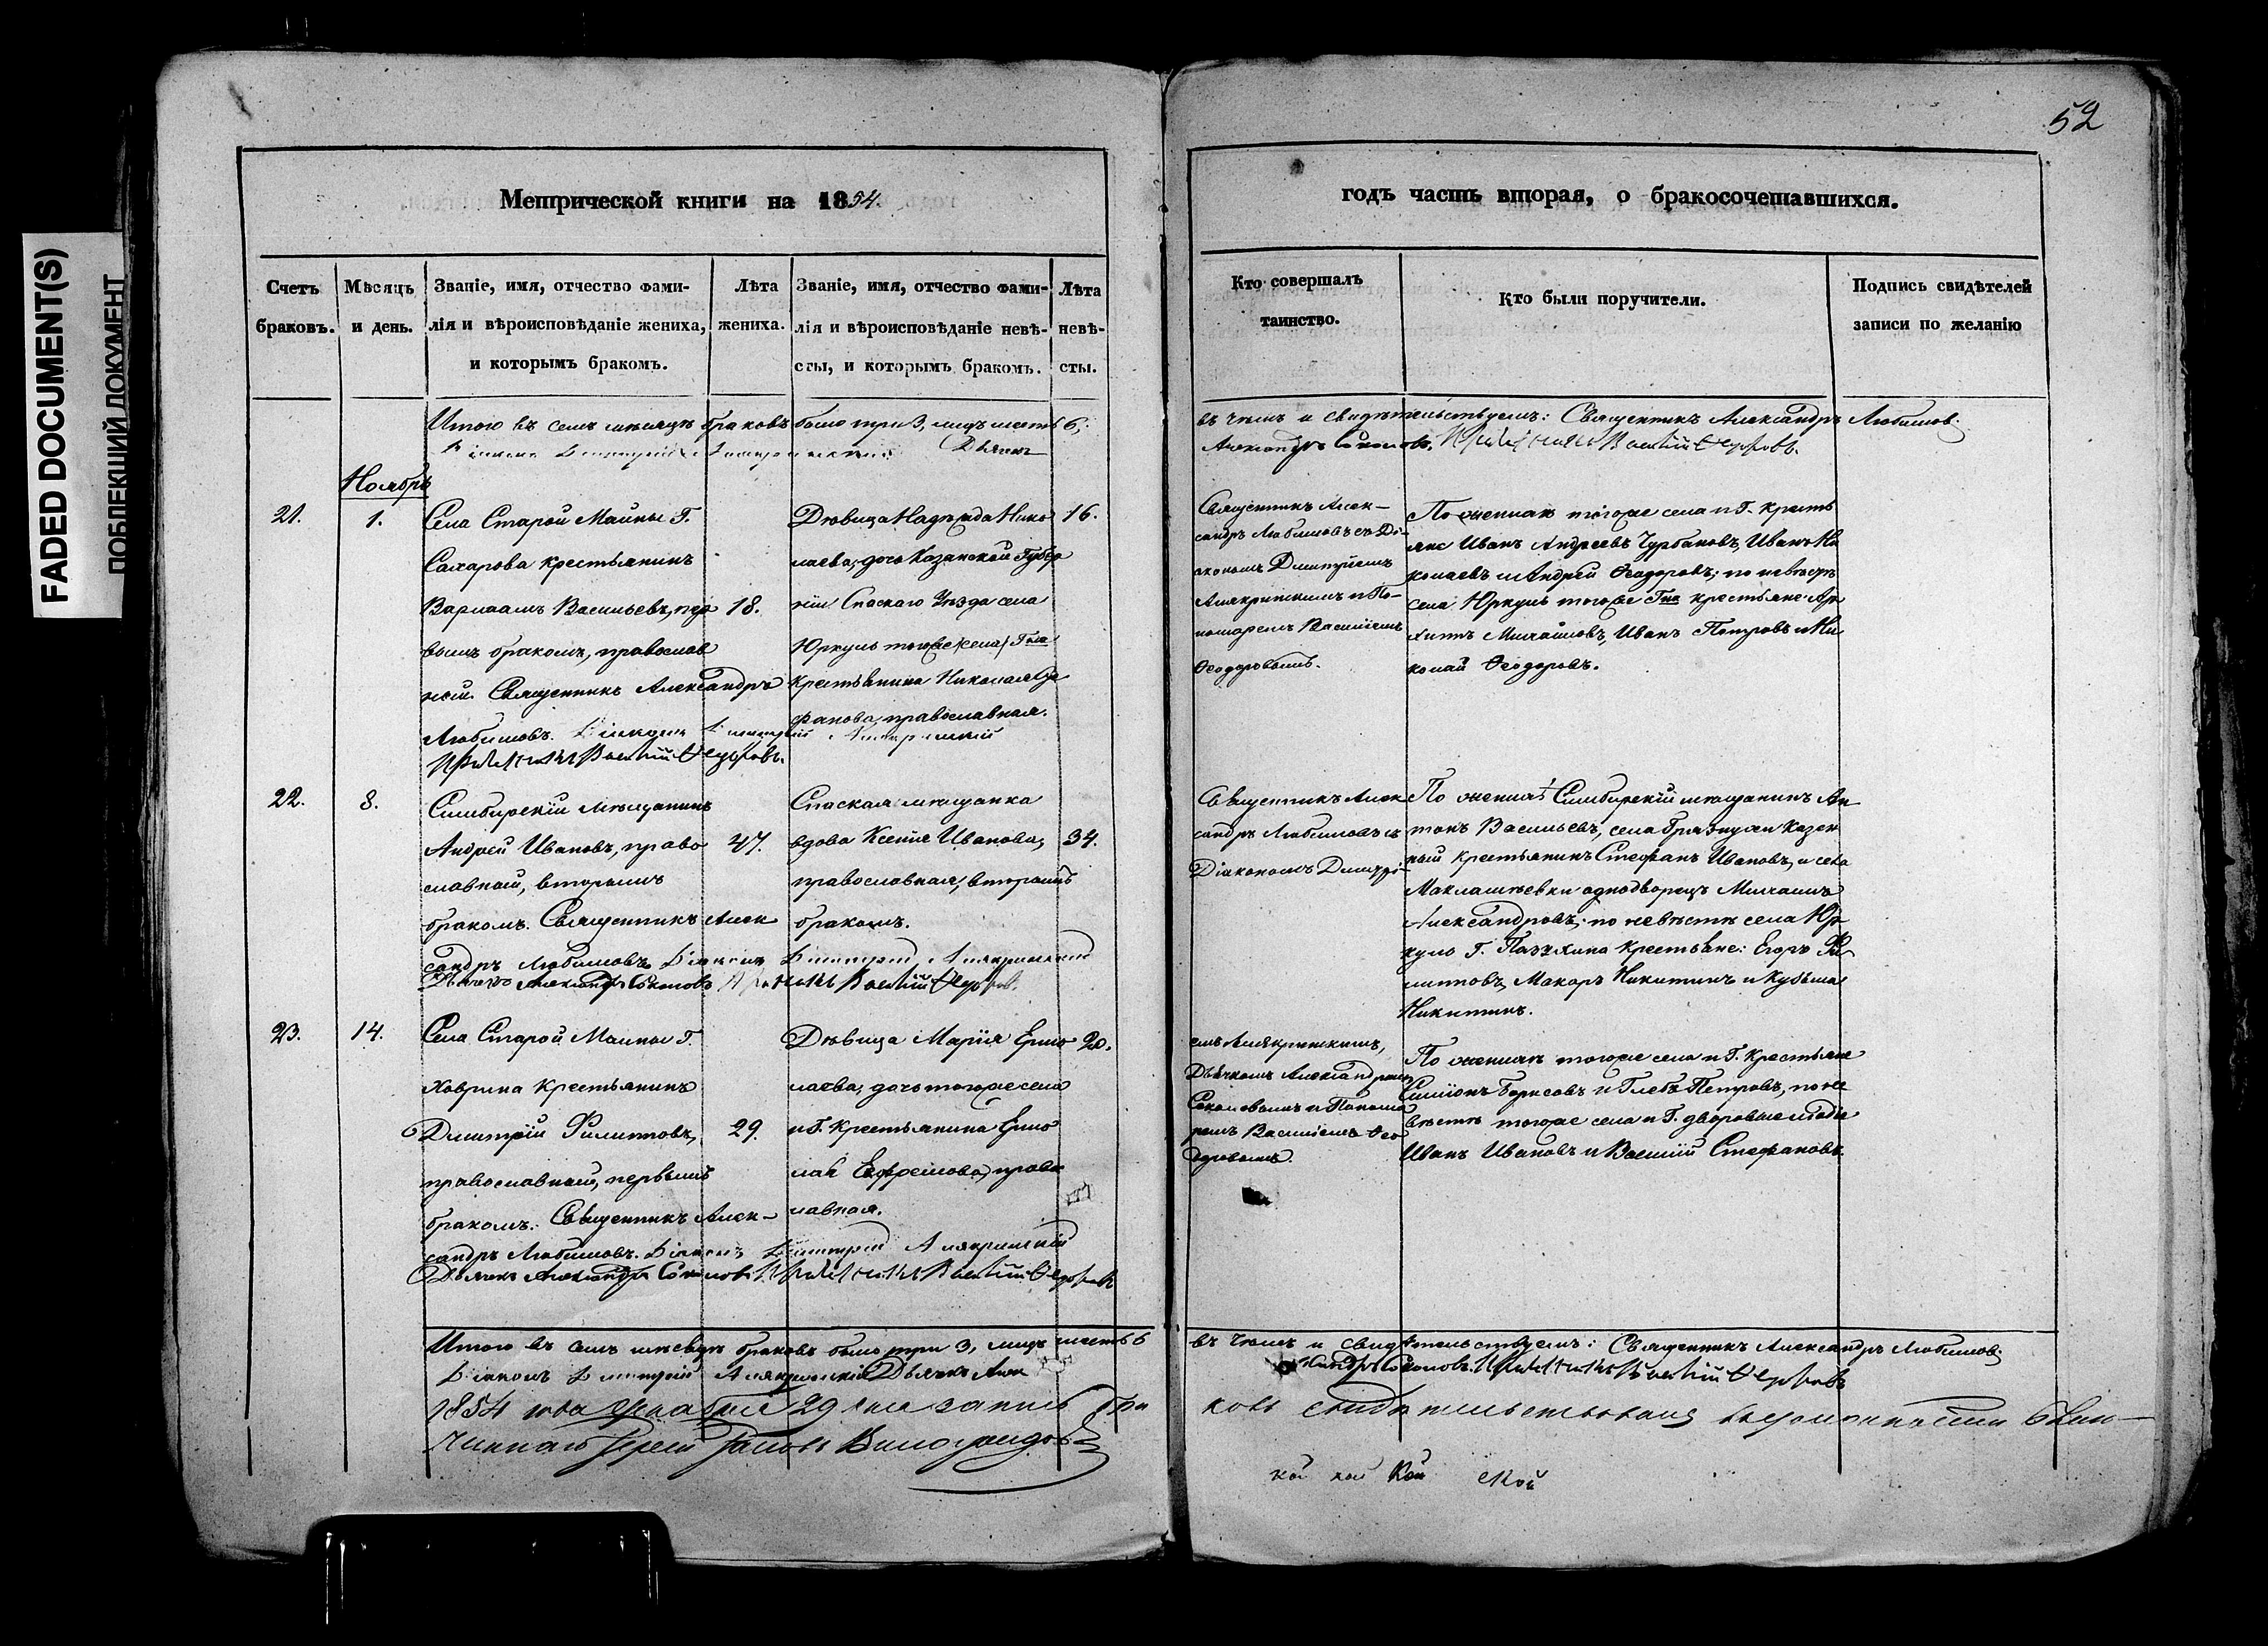 FADED DOCUMENT(S)
ПОБЛЕКШИЙ ДОКУМЕНТ
52
Метрической книги на 1854
годъ часть вторая, о бракосочетавшихся.
Счетъ браковъ.
Мѣсяцъ и день.
Званіе, имя, отчество фами-
лія и вѣроисповѣданіе жениха,
и которымъ бракомъ.
Лѣта
жениха.
Званіе, имя, отчество фами-
лія и вѣроисповѣданіе невѣ-
сты, и которымъ бракомъ.
Лѣта
невѣ-
сты.
Кто совершалъ
таинство.
Кто были поручители.
Подпись свидѣтелей
записи по желанію
Итого въ семъ мѣсяцѣ браковъ было три 3, лицъ шесть 6,
въ чемъ и свидѣтельствуемъ: Священникъ Александръ Любимовъ.
Дьячекъ
Александръ Соколовъ. Василій Ѳедоровъ.
Ноябрь
21.
1.
Села Старой Майны Г.
Сахарова крестьянинъ
Варлаамъ Васильевъ, пер
вымъ бракомъ, православ
ный. Священникъ Александръ
Любимовъ. Діаконъ Димитрій
Василій Ѳедоровъ.
18.
Дѣвица Надежда Нико
лаева, дочь Казанской Губер
ніи Спаскаго Уѣзда села
Юркуль тогоже села Гна
крестьянина Николая
православная.
16.
Священникъ Алек-
сандръ Любимовъ съ Ді-
акономъ Димитріемъ
Алякринскимъ и По-
номаремъ Василіемъ
Ѳеодоровымъ.
По женихѣ тогоже села и Г. кресть
яне Иванъ Андреевъ Чурбановъ, Иванъ Ни
колаевъ и Андрей Ѳеодоровъ; по невѣстѣ
села Юркуль тогоже Гна крестьяне
Михайловъ, Иванъ Петровъ и Ни
колай Ѳеодоровъ.
22.
8.
Симбирскій мѣщанинъ
Андрей Ивановъ, право
славный, вторымъ
бракомъ. Священникъ Алек
сандръ Любимовъ Діаконъ Димитрій Алякринскій
Дьячекъ Александръ Соколовъ Василій Ѳедоровъ.
47.
Спаская мѣщанка
вдова Ксенія Иванова,
православная, вторымъ
бракомъ.
34.
Священникъ Алек
сандръ Любимовъ съ
Діакономъ Димитрі-
По женихѣ Симбирскій мѣщанинъ Ан
тонъ Васильевъ, села Грязнухи казен
ный крестьянинъ Стефанъ Ивановъ, и села
Маклашеевки однодворецъ Михаилъ
Александровъ; по невѣстѣ села Юр
куль Г. крестьяне: Егоръ Фи
липповъ, Макаръ Никитинъ и Кузьма
Никитинъ.
23.
14.
Села Старой Майны Г.
Ховрина крестьянинъ
Дмитрій Филипповъ,
православный, первымъ
бракомъ. Священникъ Алек-
сандръ Любимовъ. Діаконъ Димитрій Алякринскій
Дьячекъ Александръ Соколовъ Василій Ѳедоровъ
29.
Дѣвица Марія Ермо
лаева, дочь тогоже села
и Г. крестьянина Ермо
лая Ефремова, правос
лавная.
20.
емъ Алякринскимъ,
Дьячкомъ Александромъ
Соколовымъ и Понома
ремъ Василіемъ Ѳео
доровымъ.
По женихѣ тогоже села и Г. крестьяне
Симіонъ Борисовъ и Глебъ Петровъ, по не
вѣстѣ тогоже села и Г. дворовые люди
Иванъ Ивановъ и Василій Стефановъ.
Итого въ семъ мѣсяцѣ браковъ было три 3, лицъ шесть 6
въ чемъ и свидѣтельствуемъ: Священникъ Александръ Любимовъ
Діаконъ Димитрій Алякринскій Дьячекъ Алек
сандръ Соколовъ. Василій Ѳедоровъ
1854 года Декабря 29 дня запись бра
ковъ свидѣтельствовалъ
Іерей Іаковъ Виноградовъ
кой кой кой ской